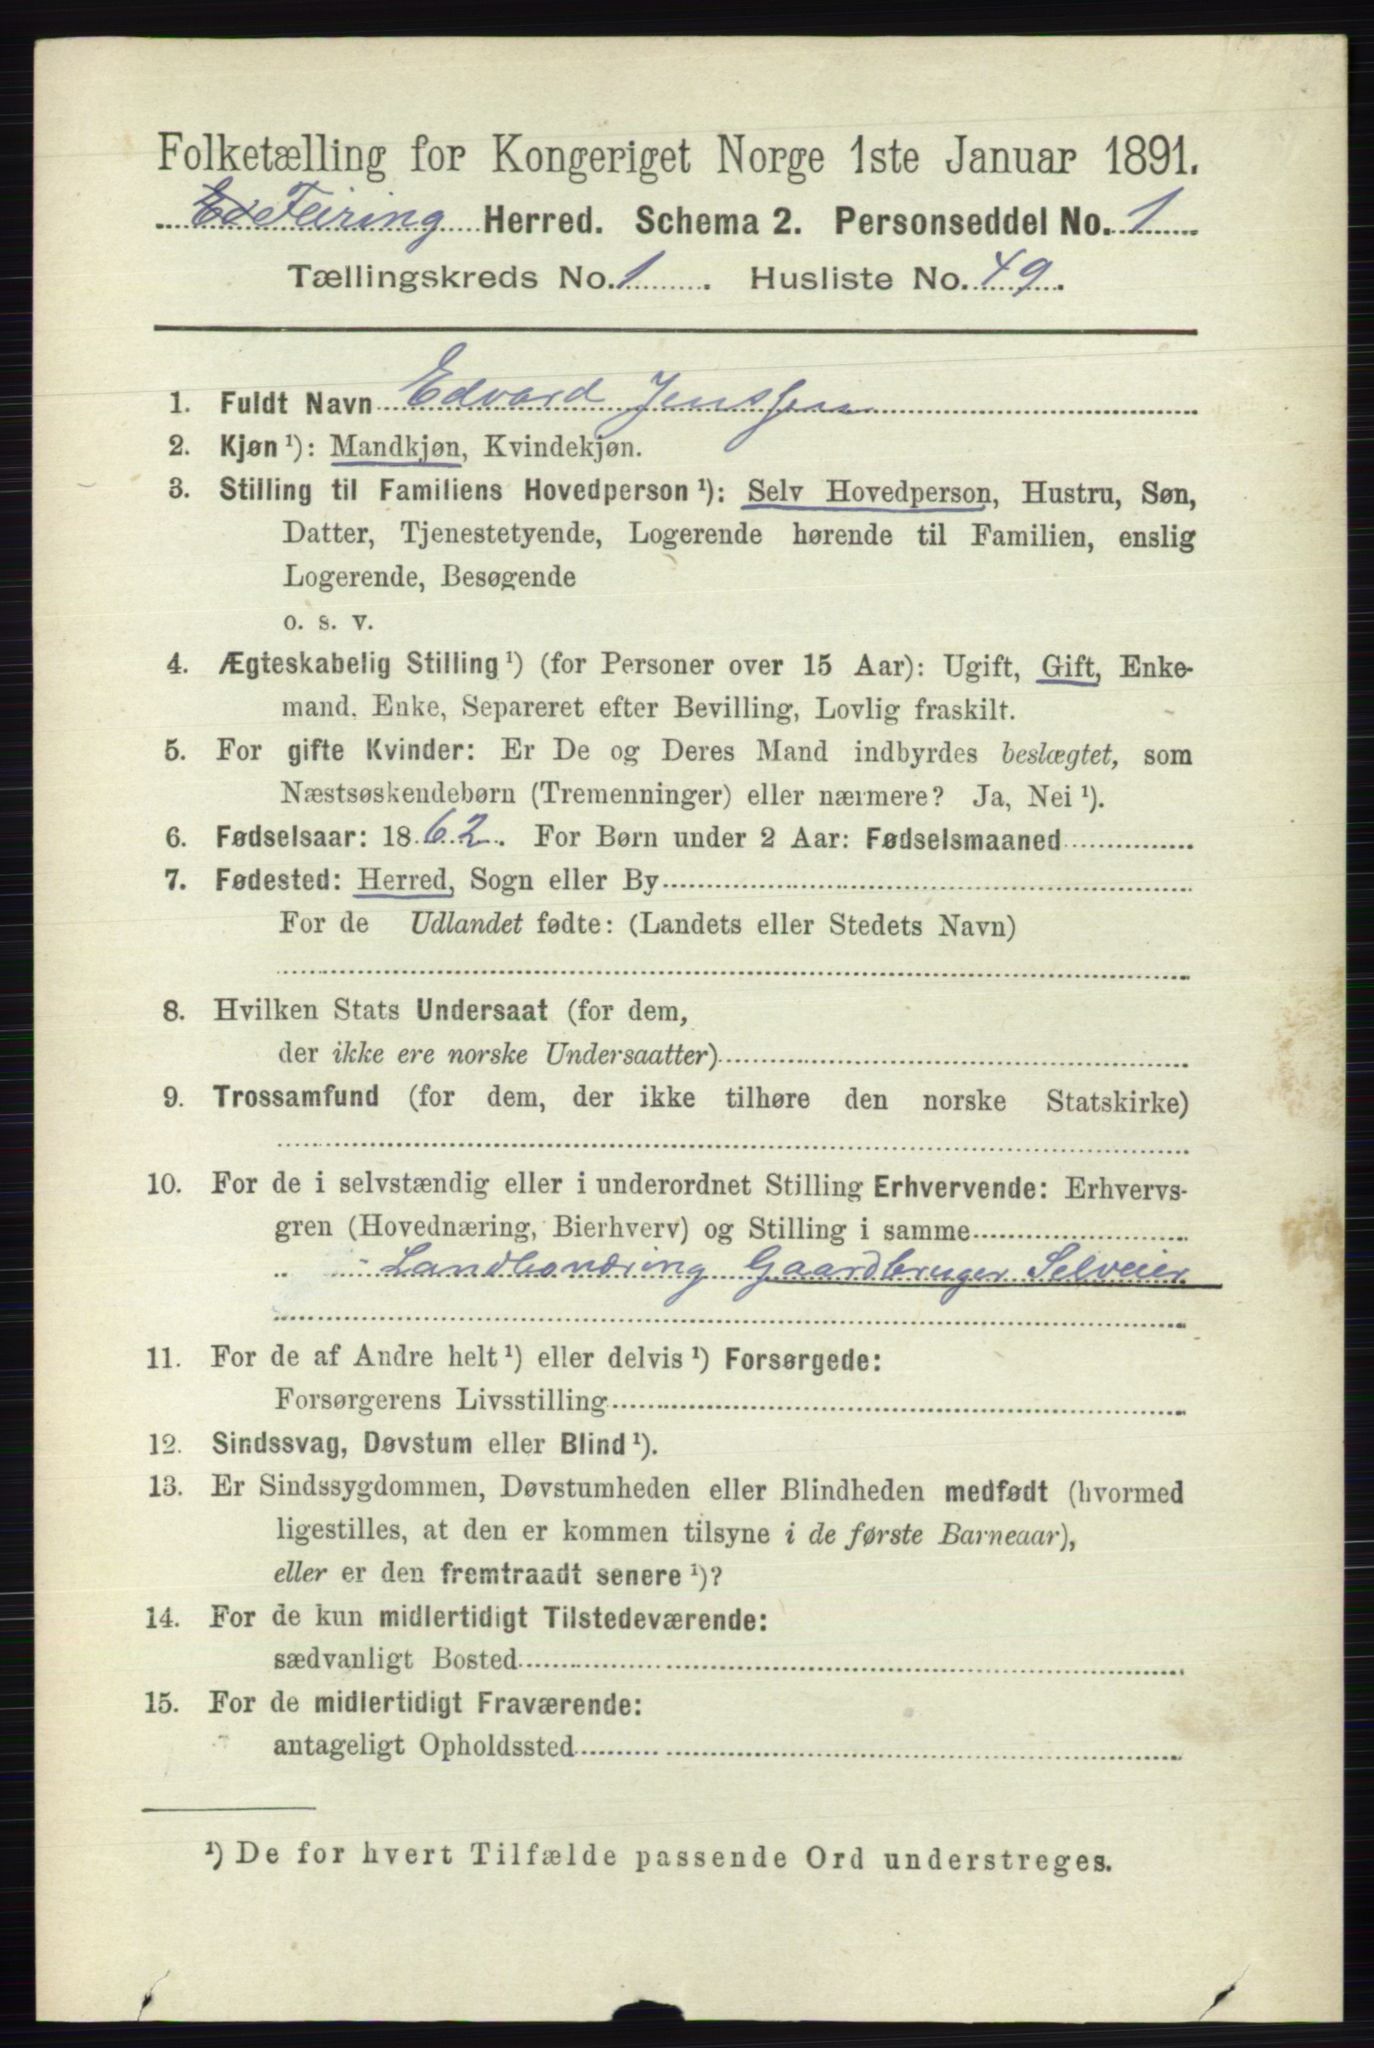 Folketælling for Kongeriget Norge 1ste Januar 1891.
Feiring Herred. Schema 2. Personseddel No. 1
Tællingskreds No. 1. Husliste No. 49.
1. Fuldt Navn Edvard Jenssen
2. Kjøn ¹): Mandkjøn, Kvindekjøn.
3. Stilling til Familiens Hovedperson ¹): Selv Hovedperson, Hustru, Søn,
Datter, Tjenestetyende, Logerende hørende til Familien, enslig
Logerende, Besøgende
o. s. v.
4. Ægteskabelig Stilling ¹) (for Personer over 15 Aar): Ugift, Gift, Enke-
mand, Enke, Separeret efter Bevilling, Lovlig fraskilt.
5. For gifte Kvinder: Er De og Deres Mand indbyrdes beslægtet, som
Næstsøskendebørn (Tremenninger) eller nærmere? Ja, Nei ¹).
6. Fødselsaar: 1862. For Børn under 2 Aar: Fødselsmaaned
7. Fødested: Herred, Sogn eller By
For de Udlandet fødte: (Landets eller Stedets Navn)
8. Hvilken Stats Undersaat (for dem,
der ikke ere norske Undersaatter)
9. Trossamfund (for dem, der ikke tilhøre den norske Statskirke)
10. For de i selvstændig eller i underordnet Stilling Erhvervende: Erhvervs-
gren (Hovednæring, Bierhverv) og Stilling i samme
Landbonæring Gaardbruger Selveier
11. For de af Andre helt ¹) eller delvis ¹) Forsørgede:
Forsørgerens Livsstilling
12. Sindssvag, Døvstum eller Blind ¹).
13. Er Sindssygdommen, Døvstumheden eller Blindheden medfødt (hvormed
ligestilles, at den er kommen tilsyne i de første Barneaar),
eller er den fremtraadt senere ¹)?
14. For de kun midlertidigt Tilstedeværende:
sædvanligt Bosted
15. For de midlertidigt Fraværende:
antageligt Opholdssted
¹) De for hvert Tilfælde passende Ord understreges.